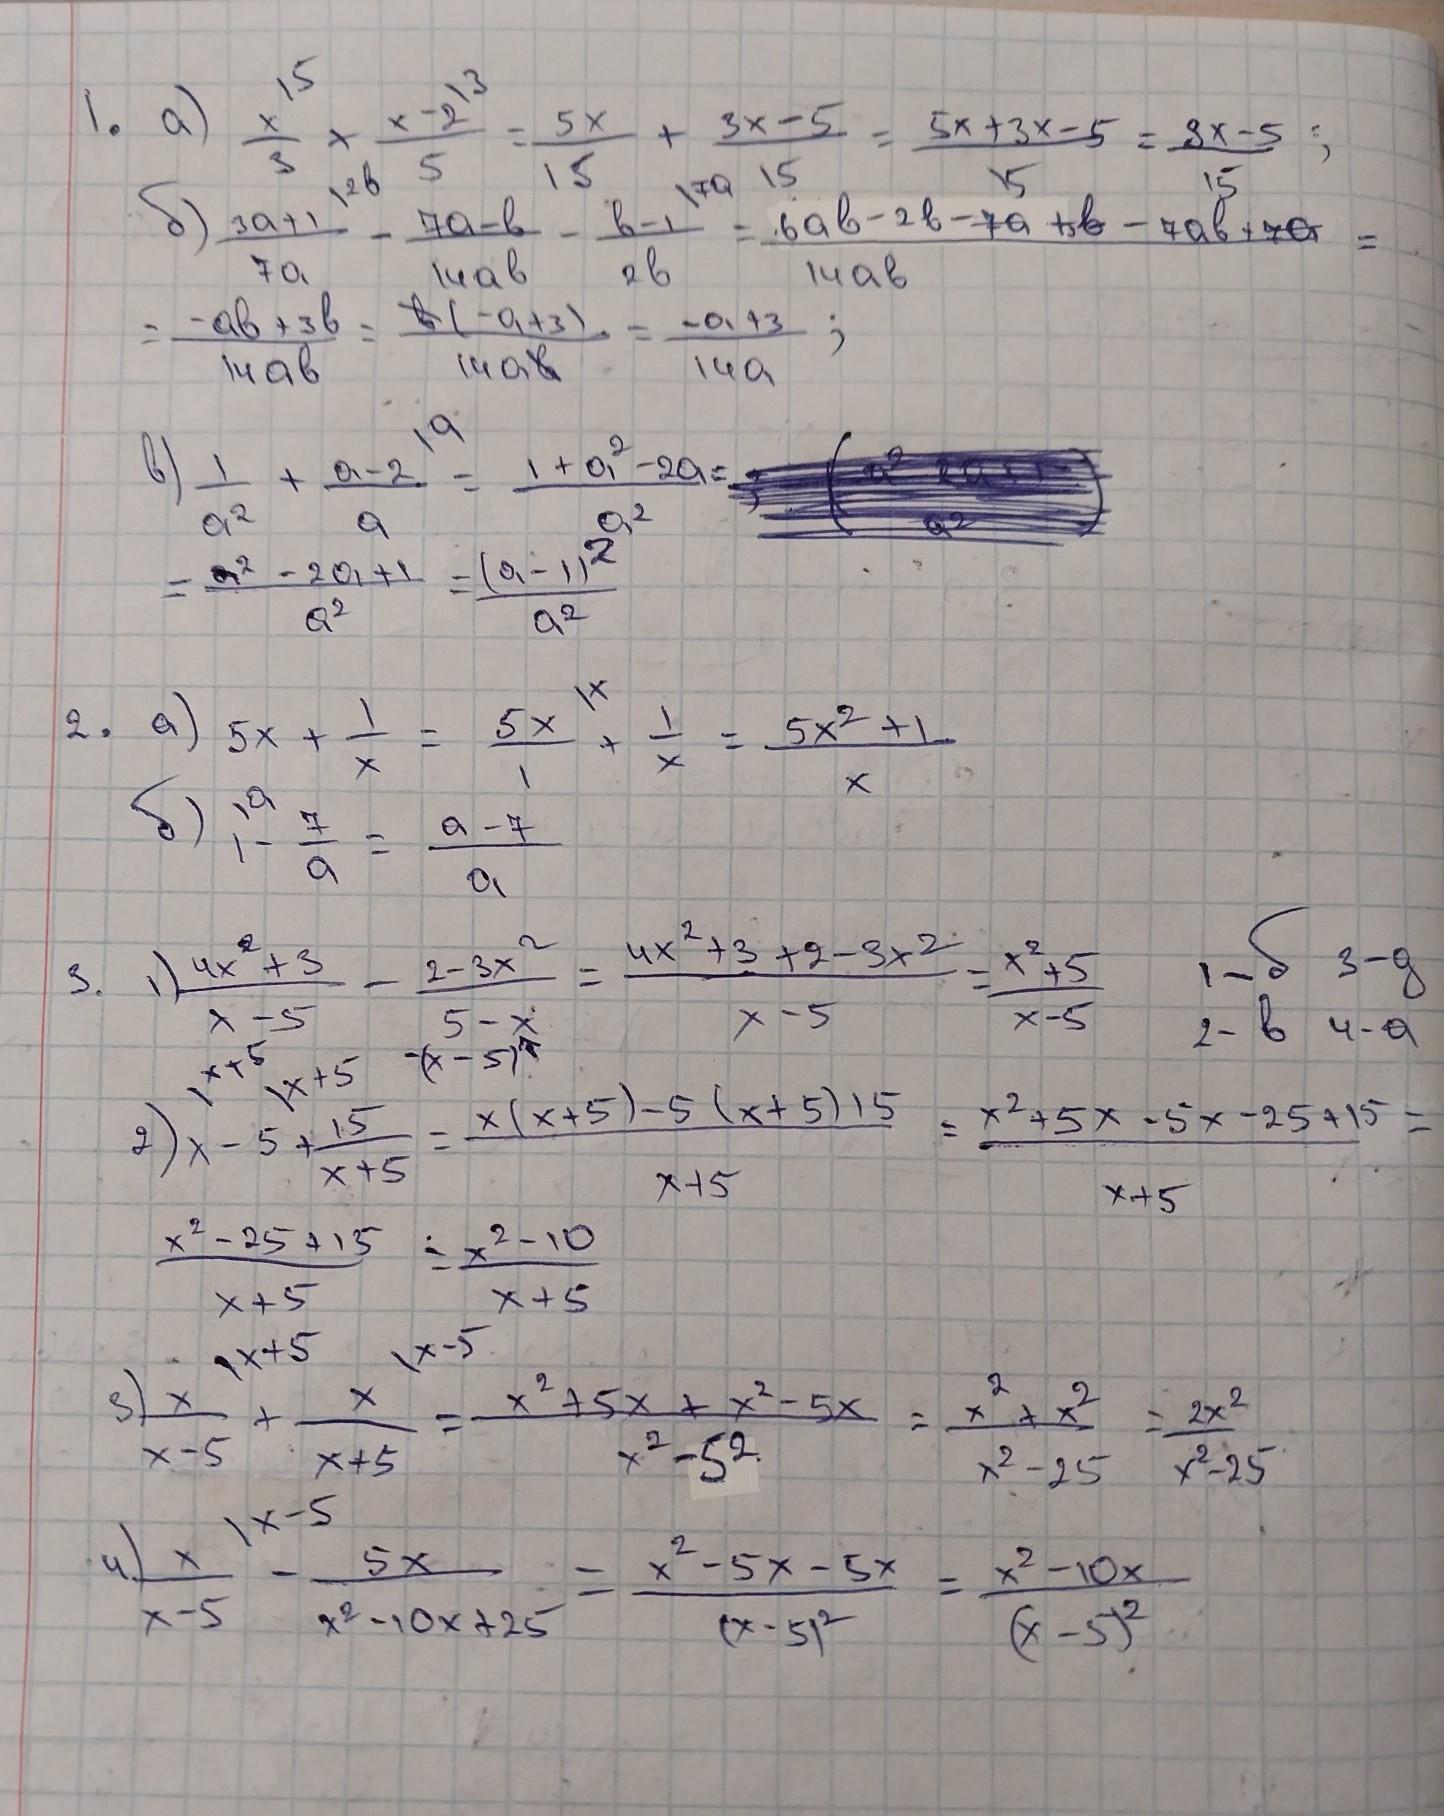 1. а) x/3 \5 + x-2/5 \3 = 5x/15 + 3x-5/15 = 5x+3x-5/15 = 8x-5/15 ;
б) 3a+1/7a \2b - 7a-b/14ab - b-1/2b \7a = 6ab-2b-7a+b-7ab+7a/14ab =
= -ab+3b/14ab = b(-a+3)/14ab = -a+3/14a ;
в) 1/a² + a-2/a \a = 1+a²-2a/a² =
= a²-2a+1/a² = (a-1)²/a²
2. а) 5x + 1/x = 5x/1 \x + 1/x = 5x²+1/x
б) 1 \a - 7/a = a-7/a
3. 1) 4x²+3/x-5 - 2-3x²/5-x = 4x²+3+2-3x²/x-5 = x²+5/x-5 1-б 3-д
-(x-5) 2-в 4-а
2) x \x+5 - 5 \x+5 + 15/x+5 = x(x+5)-5(x+5)15/x+5 = x²+5x-5x-25+15/x+5 =
x²-25+15/x+5 = x²-10/x+5
3) x/x-5 \x+5 + x/x+5 \x-5 = x²+5x+x²-5x/x²-5² = x²+x²/x²-25 = 2x²/x²-25
4) x/x-5 \x-5 - 5x/x²-10x+25 = x²-5x-5x/(x-5)² = x²-10x/(x-5)²